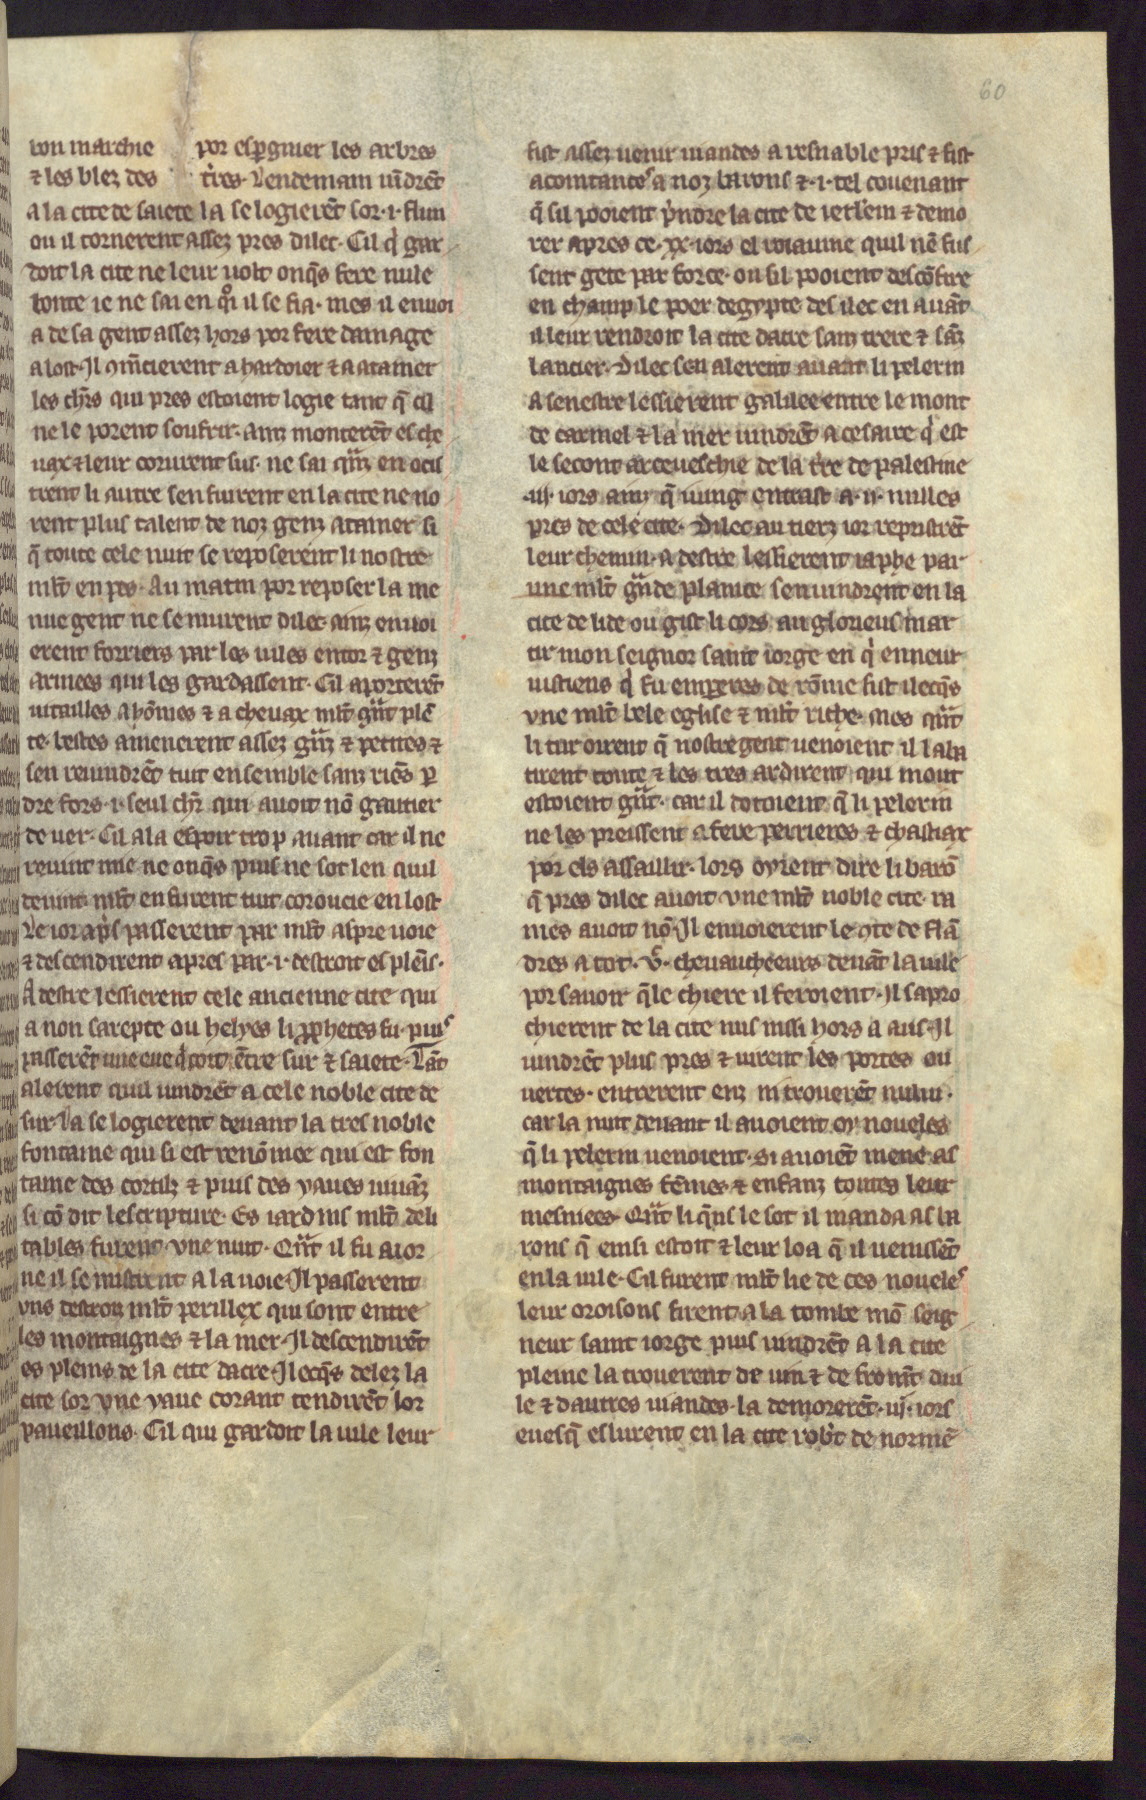 60
bon marchie por esꝑgnier les arbres
⁊ les blez des t̾res. Lendemain vīdrēt
a la cite de saiete la se logierēt sor .i. flun
ou il tornerent assez pres dilec. Cil q̇ gar
doit la cite ne leur volt onq̄s fere nule
bonte ie ne sai en qͦi il se fia. mes il envoi
a de sa gent assez hors por fere damage
a lost. Il ꝯmēcierent a hardoier ⁊ a atainer
les chr̄s qui pres estoient logie tant q̄ cil
ne le porent soufrir. ainz monterēt es che
vax ⁊ leur corurent sus. ne sai quāz en ocis
trent li autre senfuirent en la cite ne no
rent plus talent de noz genz atainer si
q̄ toute cele nuit se reposerent li nostre
ml̄t en pes. Au matin por reposer la me
nue gent ne se murent dilec. ainz envoi
erent forriers par les viles entor ⁊ genz
armees qui les gardassent. Cil aporterēt
vitailles a hōmes ⁊ a chevax ml̄t gūt plē
te. bestes amenerent assez gūz ⁊ petites ⁊
sen revindrēt tuit ensemble sanz riēs ꝑ
dre fors .i. seul chr̄ qui avoit nō gautier
de ver. Cil ala espoir trop avant car il ne
revint mie ne onq̄s puis ne sot len quil
devint. ml̄t en furent tuit coroucie en lost
Le ior ap̄s passerent par ml̄t aspre voie
⁊ descendirent apres par .i. destroit es pleīs.
A destre lessierent cele ancienne cite qui
a non sarepte ou helyes li ꝓphetes fu. puis
passerēt une eve q̇ cort ētre sur ⁊ saiete. Tāt
alerent quil vindrēt a cele noble cite de
sur. La se logierent devant la tres noble
fontaine qui si est renōmee qui est fon
taine des cortilz ⁊ puis des yaves vivāz
si cō dit lescripture. Es iardins ml̄t deli
tables furent vne nuit. Qn̄t il fu aior
ne il se mistrent a la voie. Il passerent
vns destroiz ml̄t perillex qui sont entre
les montaignes ⁊ la mer. Il descendirēt
es pleins de la cite dacre. Ilecq̄s delez la
cite sor vne yave corant tendirēt lor
paveillons. Cil qui gardoit la vile leur
fist assez venir viandes a resnable pris ⁊ fist
acointances a noz barons ⁊ .i. tel covenant
q̄ sil pooient p̄ndre la cite de ierl̄em ⁊ demo
rer apres ce .xx. iors el roiaume quil nē fus
sent gete par force. ou sil pooient descōfire
en champ le poer degypte des ilec en avāt
il leur rendroit la cite dacre sanz trere ⁊ sāz
lancier. Dilec sen alerent avant li pelerin
A senestre lessierent galilee entre le mont
de carmel ⁊ la mer vindrēt a cesaire q̇ est
le secont arceveschie de la t̾re de palestine
.iij. iors ainz q̄ iung entrast a .ij. milles
pres de cele cite. Dilec au tierz ior repristrēt
leur chemin. a destre lessierent iaphe par
une ml̄t gūde planice sen vindrent en la
cite de lide ou gist li cors au glorieus mar
tir mon seignor saint iorge en q̇ enneur
iustiens q̇ fu emꝑeres de rōme fist ilecq̄s
vne ml̄t bele eglise ⁊ ml̄t riche. Mes qn̄t
li tur oirent q̄ nostre gent venoient il laba
tirent toute ⁊ les tres ardirent qui mout
estoient gūt. car il dotoient q̄ li pelerin
ne les preissent a fere perrieres ⁊ chastiax
por els assaillir. lors oyrent dire li barō
q̄ pres dilec avoit vne ml̄t noble cite. ra
mes avoit nō. Il envoierent le ꝯte de flā
dres a tot .vͨ. chevaucheeurs devāt la vile
por savoir q̄le chiere il feroient. Il sapro
chierent de la cite nus nissi hors a aus. Il
vindrēt plus pres ⁊ virent les portes ou
vertes. entrerent enz ni troverēt nului.
car la nuit devant il avoient oy noveles
q̄ li pelerin venoient. si avoiēt mene as
montaignes fēmes ⁊ enfanz toutes leur
mesniees. Qn̄t li q̄ns le sot il manda as ba
rons q̄ einsi estoit ⁊ leur loa q̄ il venissēt
en la vile. Cil furent ml̄t lie de ces noveles
leur oroisons firent a la tombe mō seig
neur saint iorge puis vindrēt a la cite
pleine la troverent de vin ⁊ de fromēt dui
le ⁊ dautres viandes. la demorerēt .iij. iors
evesq̄ eslurent en la cite rob̄t de normē